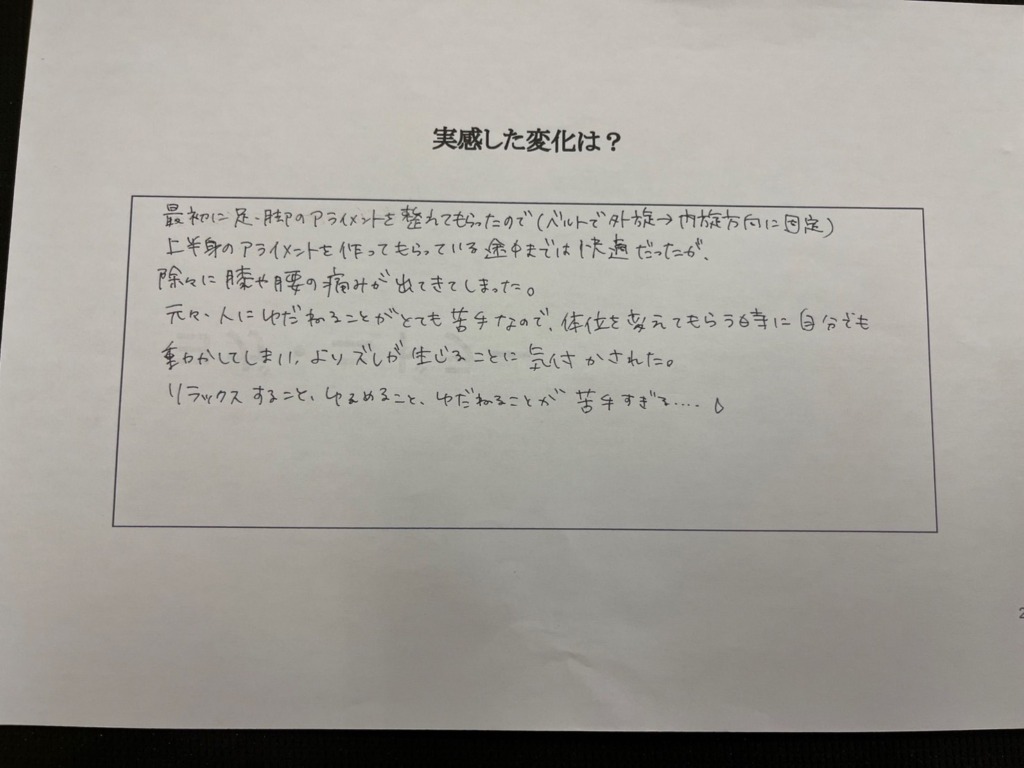 実感した変化は？
最初に足・脚のアライメントを整れてもらったので(ベルトで外旋→内旋方向に固定)
上半身のアライメントを作ってもらっている途中までは快適だったが、
除々に膝や腰の痛みが出てきてしまった。
元々、人にゆだねることがとても苦手なので、体位を変えてもらう時に自分でも
動かしてしまい、よりズレが生じることに気付かされた。
リラックスすること、ゆるめること、ゆだねることが苦手すぎる....
2